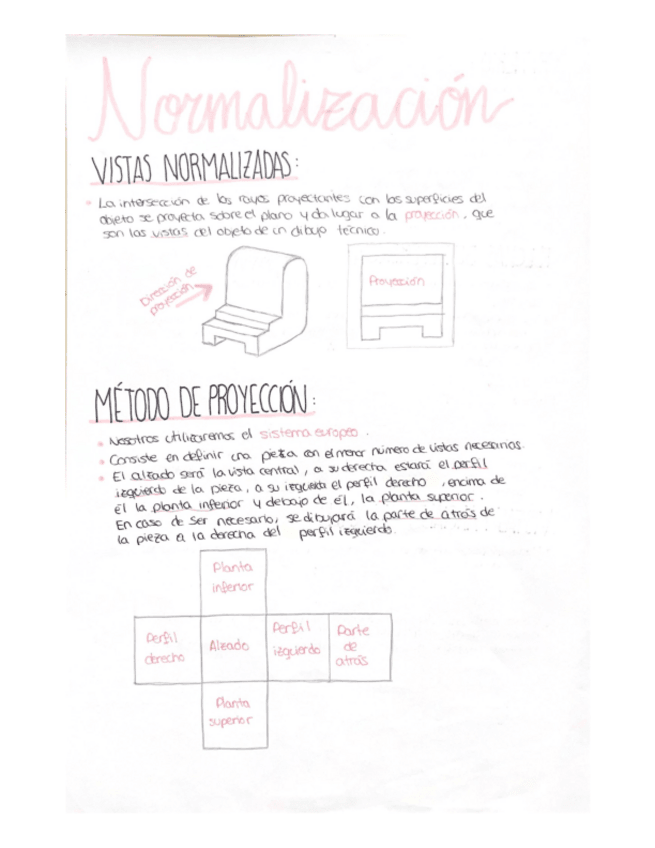 Normalización
VISTAS NORMALIZADAS:
La intersección de los rayos proyectantes con las superficies del
objeto se proyecta sobre el plano y da lugar a la proyección, que
son las vistas del objeto de un dibujo técnico.
Dirección de
proyección
Proyección
MÉTODO DE PROYECCIÓN:
Nosotros utilizaremos el sistema europeo.
Consiste en definir una pieza con el menor número de vistas necesarias.
El alzado será la vista central, a su derecha estará el perfil
izquierdo de la pieza, a su izquierda el perfil derecho, encima de
él la planta inferior y debajo de él, la planta superior.
En caso de ser necesario, se dibujará la parte de atrás de
la pieza a la derecha del perfil izquierdo.
Planta
inferior
Perfil
derecho
Alzado
Perfil
izquierdo
Parte
de
atrás
Planta
superior